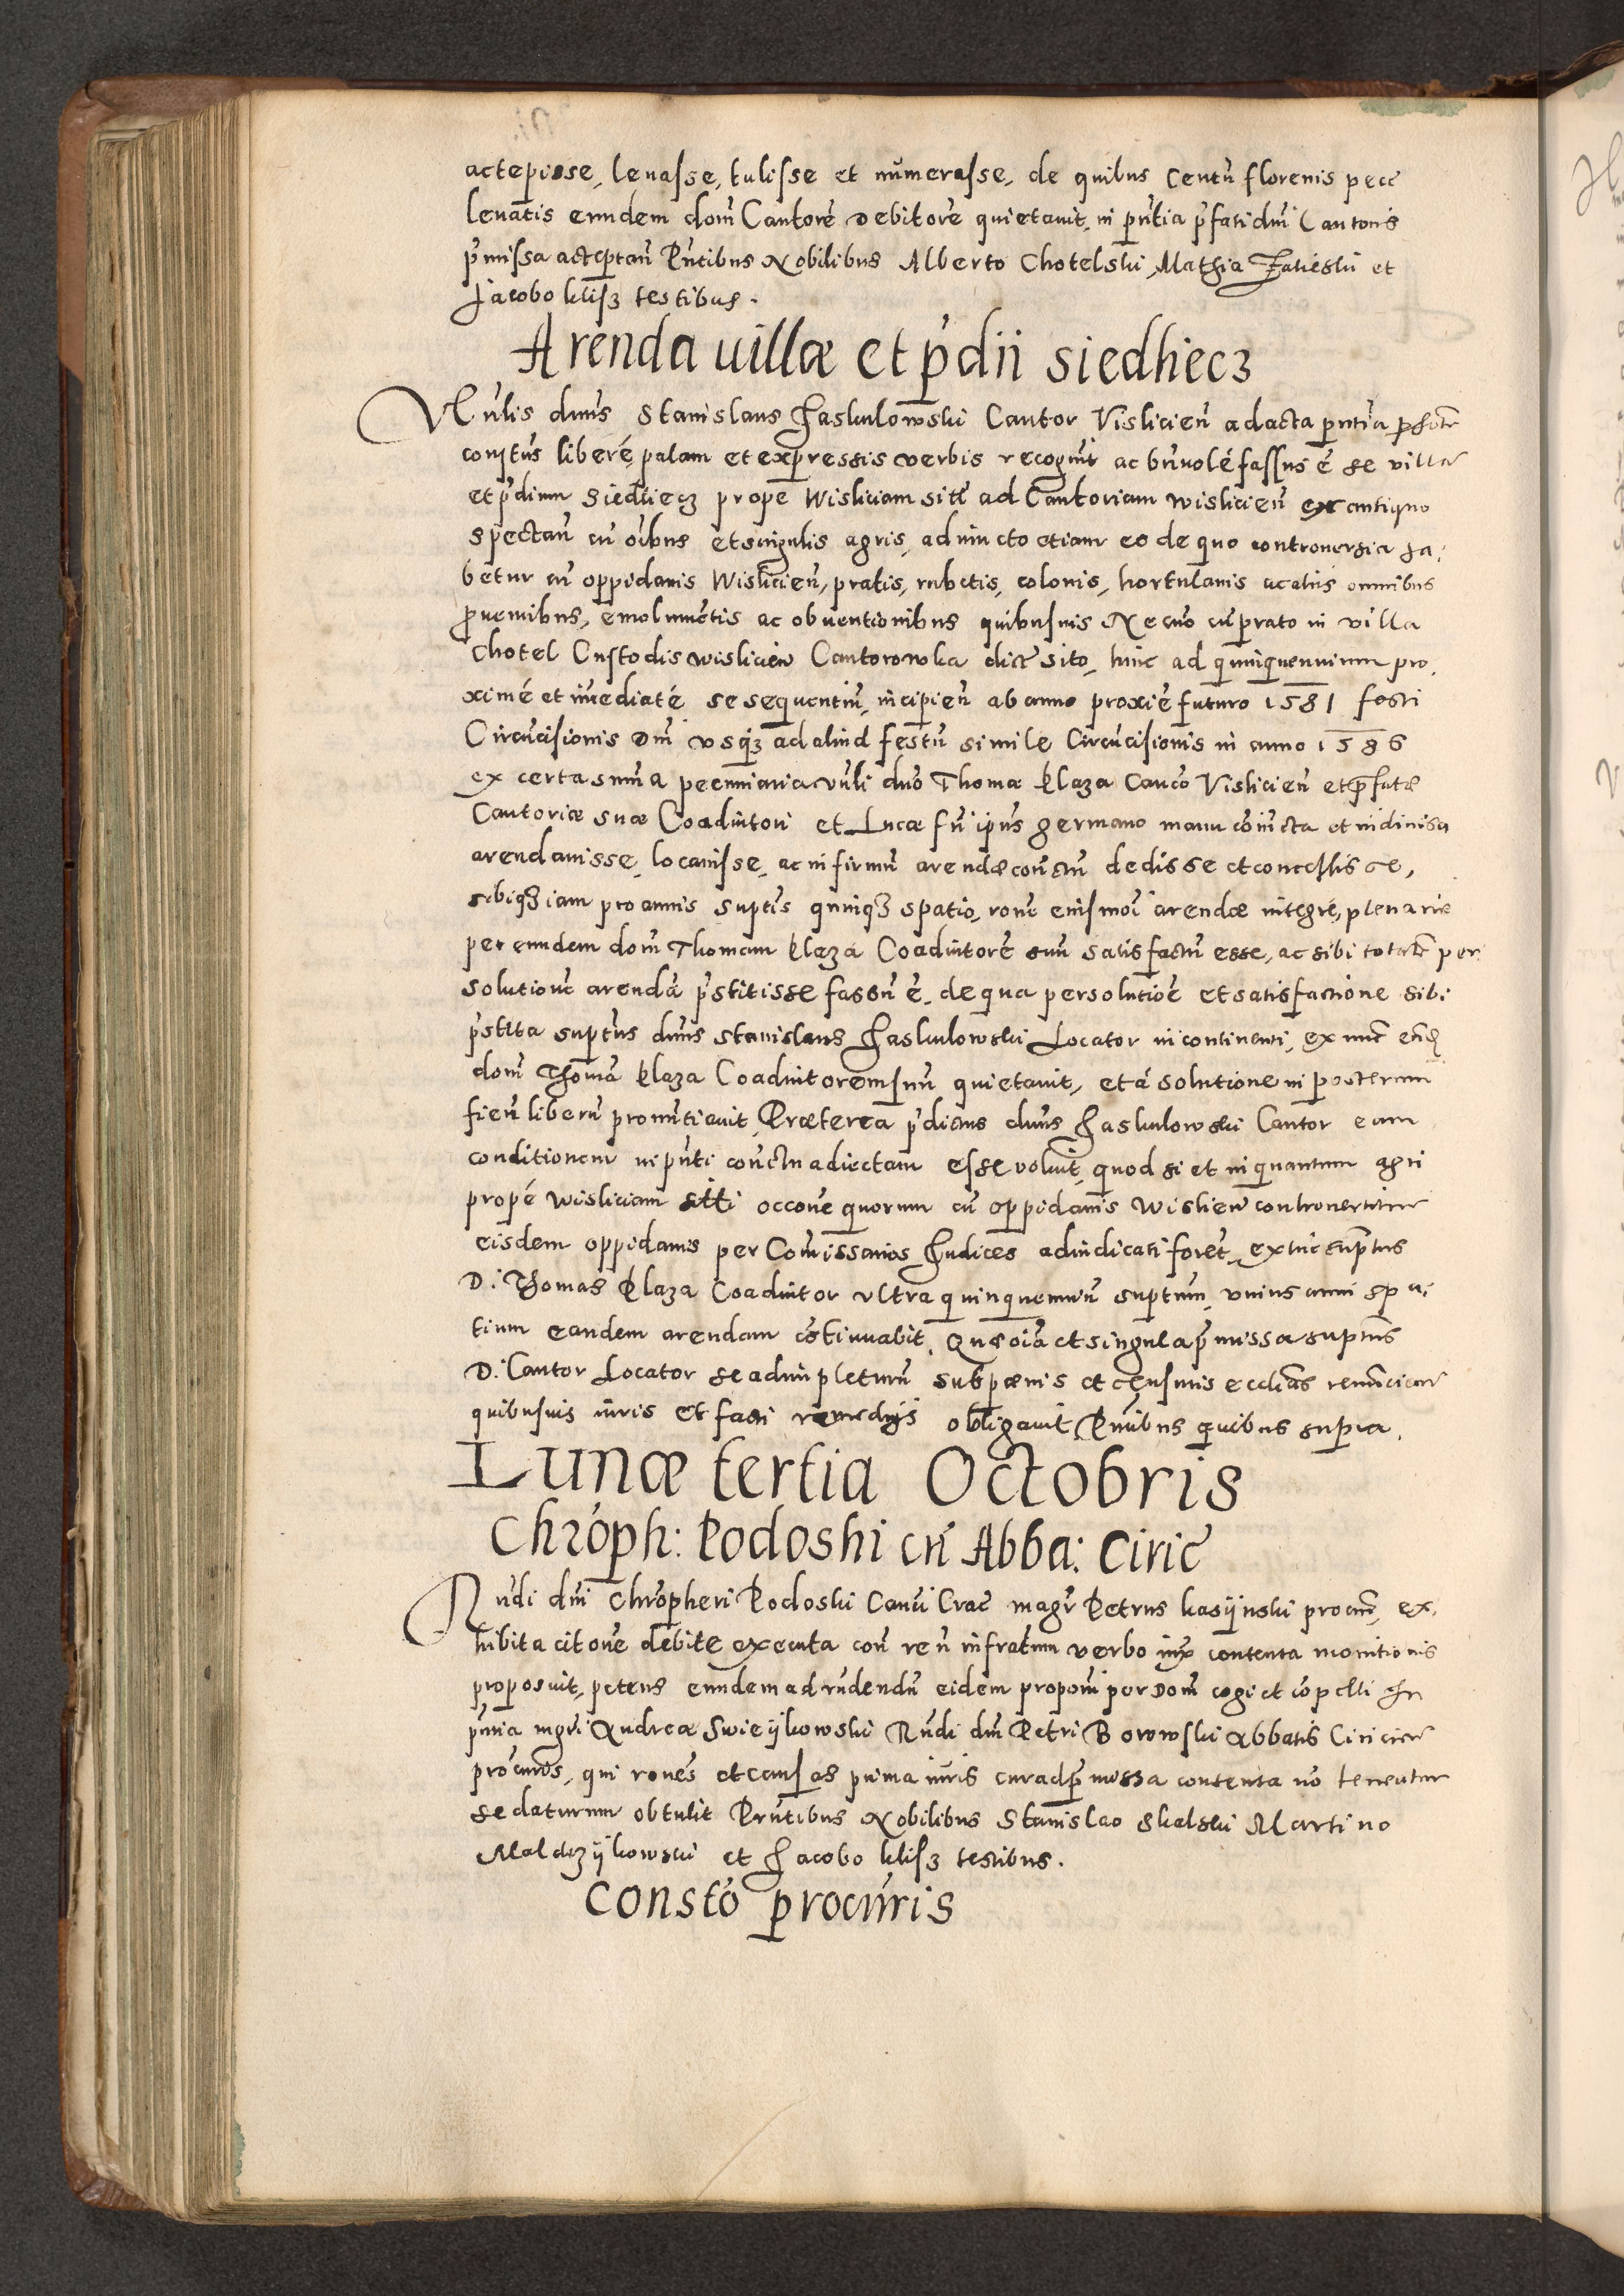 acceptisse, leuasse, tulisse et numerasse, de quibus Centũ florenis pecc̃
leuatis eundem dom̃ Cantorẽ Debitorẽ quietauit, in p̃ntia p̃fati dñi Cantoris
p̃missa acceptañ P̃ntibus Nobilibus Alberto Chotelski, Mathia et
Jacobo klisz testibus.
Arenda uillæ et p̃dii siedliecz
Vñlis dnus Stanislaus Jaskulowski Cantor Visliceñ ad acta p̃ntia
constus liberé, palam et expressis verbis recognit ac bñuolé fassus ẽ se villã
et p̃dium Siedliecz propé Wisliciam sitũ ad Cantoriam wisliceñ ex antiquo
spectañ cũ oĩbus et singulis agris, adiuncto etiam eo de quo controuersia ha,
betur cũ oppidanis Wislicieñ, pratis, rubetis, colonis, hortulanis ac aliis omnibus
prouentibus, emolumẽtis ac obuentionibus quibusuis Necnõ cũ prato in villa
Chotel Custodis wislicieñ Cantorowka dict̃ sito, hinc ad quinquennium pro,
ximé et im̃ediaté se sequentiũ, incipieñ ab anno proxie futuro 1581 festi
Circũcisionis Dñi vsq3 ad aliud festũ simile Circũcisionis in anno 1586
ex certa sum̃a pecuniaria vñli dño Thomæ Klaza Canco Vislicieñ et præfatæ
Cantoriæ suæ Coadiutori et Lucæ frĩ ipsius germano manu cõiuncta et indiuisa
arendauisse, locauisse, ac in firmũ arendæ contractũ dedisse et concessisse,
sibiq3 iam pro annis suptis quinq3 spatio, ronẽ eiusmoi arendæ integré, plenarie
per eundem dom̃ Thomam Klaza Coadiutorẽ suũ satisfactũ esse, ac sibi totalẽ per
solutionẽ arendæ p̃stitisse fassũ ẽ, de qua persolutiõe et satisfactione sibi
p̃stita suptus dnus Stanislaus Jaskulowski Locator in continenti, ex nunc eũd
dom̃ Thomã Klaza Coadiutorem suũ quietauit, et á solutione in posterum
fieñ liberũ pronũtiauit, Præterea p̃dictus dnus Jaskulowski Cantor eam
conditionem in p̃nti con̄ctu adiectam esse voluit, quod si et in quantum agri
propé wisliciam siti occone quorum cũ oppidanis Wislicieñ controuertitur
eisdem oppidanis per Com̃issarios Judices adiudicati foreñt, extunc suptus
D: Thomas Klaza Coadiutor vltra quinquenniũ suptum, vnius anni spa,
tium eandem arendam cõtinuabit, Quæ oĩa et singula p̃missa suptus
D: Cantor Locator se adimpleturũ sub pœnis et censuris eccłias renũciauit
quibusuis iuris et facti remedijs obligauit P̃ntibus quibus supra.
Lunæ tertia Octobris
Chroph: Podoski cũ Abba: Ciric̃
Rñdi dñi Chropheri Podoski Canci Crac̃ magr̃ Petrus kasijnski procur̃, ex,
hibita citone debite executa con̄ reũ infratum verbo iux̃ contenta monitionis
proposuit, petens eundem ad rñdendũ eidem propoñi per Dom̃ cogi et cõpelli In
p̃ntia mgri Andreæ Swieijkowski Rñdi dñi Petri Borowski Abbatis Ciricieñ
procuris, qui rones et causas prima iuris cur ad p̃missa contenta nõ teneatur
se daturum obtulit P̃ntibus Nobilibus Stanislao Skalski Martino
Maldrzijkowski et Jacobo klisz testibus.
Consto procuris